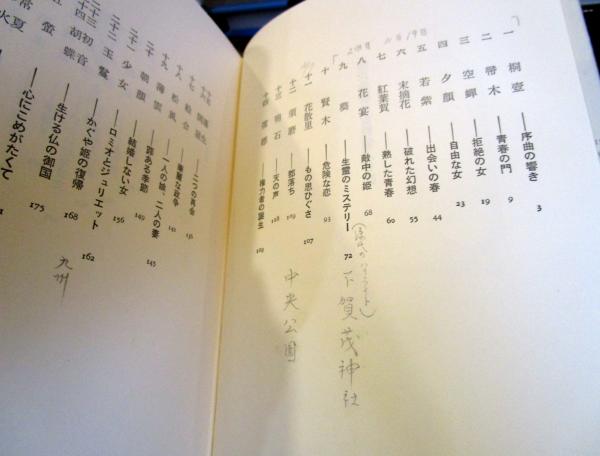 一 桐壺――序曲の響き 3
二 帚木――青春の門 9
三 空蟬――拒絶の女 19
四 夕顔――自由な女 23
五 若紫――出会いの春 44
六 末摘花――破れた幻想 55
七 紅葉賀――熟した青春 60
八 花宴――敵中の姫 68
九 葵――生霊のミステリー 72
下賀茂神社
十 賢木――危険な恋 93
十一 花散里――もの思いぐさ 107
十二 須磨――都落ち 109
中央公園
十三 明石――天の声 118
十四 澪標――権力者の誕生
十七 絵合――華麗な政争
十八 松風――一人の娘、二人の妻
十九 薄雲――罪ある季節 145
二十 朝顔――結婚しない女 149
二十一 少女――ロミオとジュリエット 156
二十二 玉鬘――かぐや姫の復帰 162
九州
二十三 初音――生ける仏の御国 168
胡蝶――心にこめがたくて 175
螢
常夏